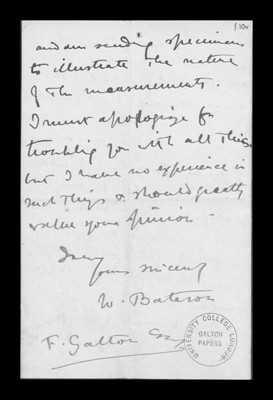 110v
and am sending specimens
to illustrate the nature
of the measurements.
I must apologize for
troubling you with all this
but I have no experience in
such things & should greatly
value your opinion.
I am
Yours sincerely
W. Bateson
F. Galton Esq
UNIVERSITY COLLEGE LONDON
GALTON
PAPERS